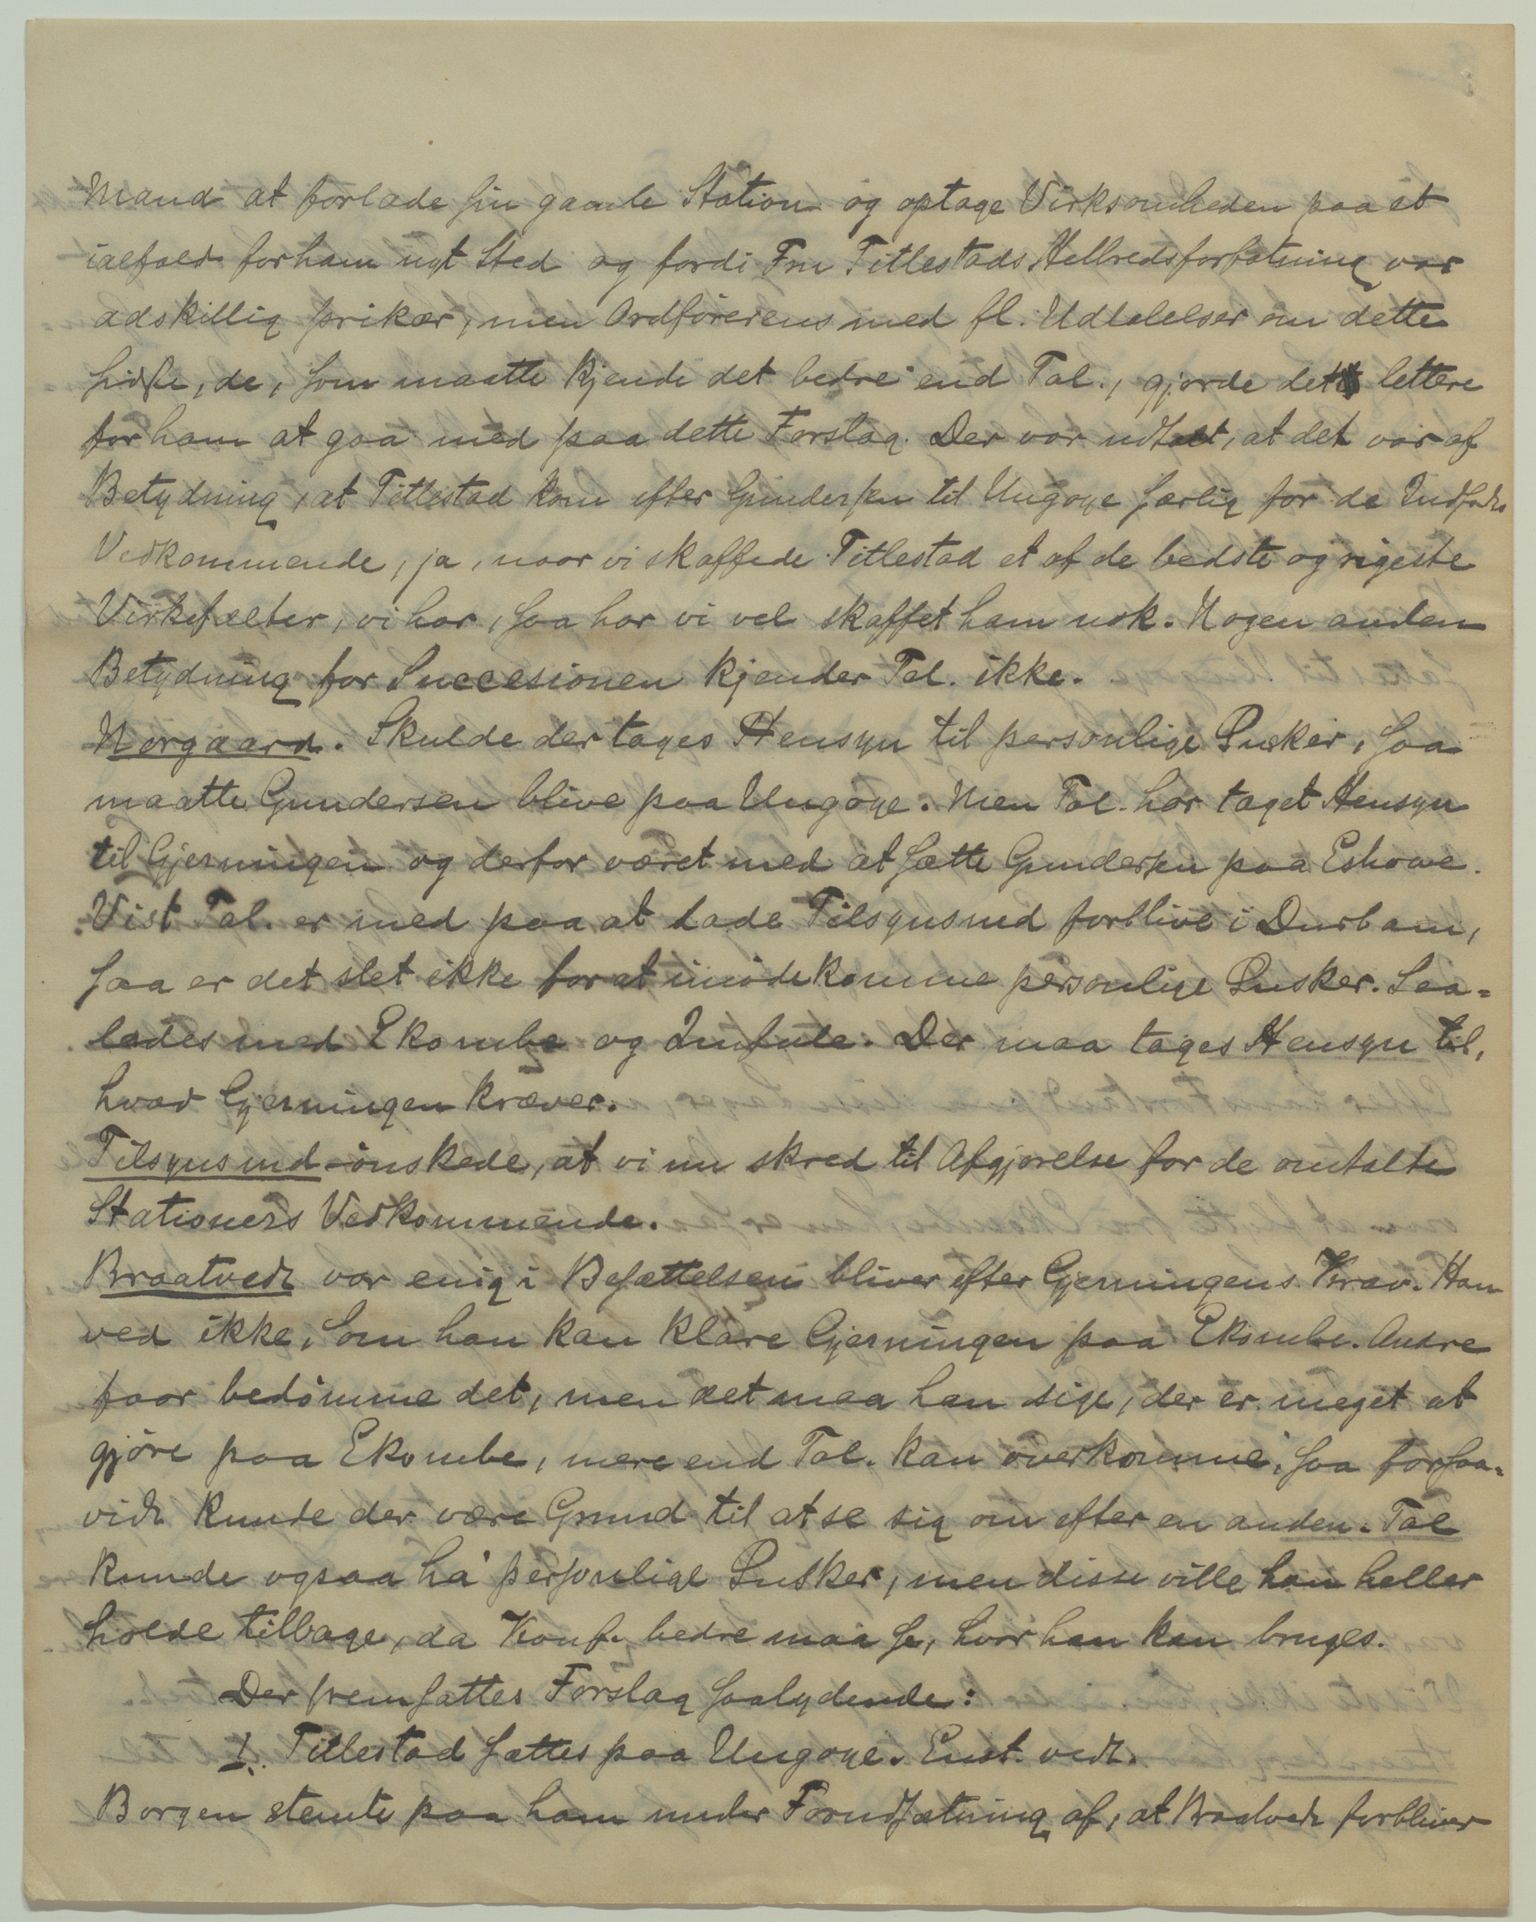 Mand at forlade sin gamle Station og optage Virksomheden paa et
ialfald for ham nyt Sted og fordi Fru Titlestads Helbredsforfatning var
adskillig prikær, men Ordförerens med fl. Udtalelser om dette
sidste, de, som maatte kjende det bedre end Tal., gjorde det lettere
for ham at gaa med paa dette Forslag. Der var udtalt, at det var af
Betydning, at Titlestad kom efter Gundersen til Ungoye særlig for de Indfødtes
Vedkommende, ja, naar vi skaffede Titlestad et af de bedste og rigeste
Virkefælter, vi har, saa har vi vel skaffet ham nok. Nogen anden
Betydning for Succesionen kjender Tal. ikke.
Norgaard. Skulde der tages Hensyn til personlige Önsker, saa
maatte Gundersen blive paa Ungoye. Men Tal. har taget Hensyn
til Gjerningen og derfor været med at sætte Gundersen paa Eshowe.
Vist Tal. er med paa at lade Tilsynsmd forblive i Durban,
saa er det slet ikke for at imödekomme personlige Önsker. Saa-
ledes med Ekombe og Imfule. Der maa tages Hensyn til,
hvad Gjerningen kræver.
Tilsynsmd önskede, at vi nu skred til Afgjörelse for de omtalte
Stationers Vedkommende.
Braatvedt var enig i Besættelsen bliver efter Gjerningens Krav. Han
ved ikke, om han kan klare Gjerningen paa Ekombe. Andre
faar bedömme det, men det maa han sige, der er meget at
gjöre paa Ekombe, mere end Tal. kan overkomme, saa forsaa-
vidt kunde der være Grund til at se sig om efter en anden. Tal
kunde ogsaa ha personlige Önsker, men disse ville han heller
holde tilbage, da Konf. bedre maa se, hvor han kan bruges.
Der fremsattes Forslag saalydende:
1. Titlestad sættes paa Ungoye. Enst. vedt.
Borgen stemte paa ham under Forudsætning af, at Braatvedt forbliver